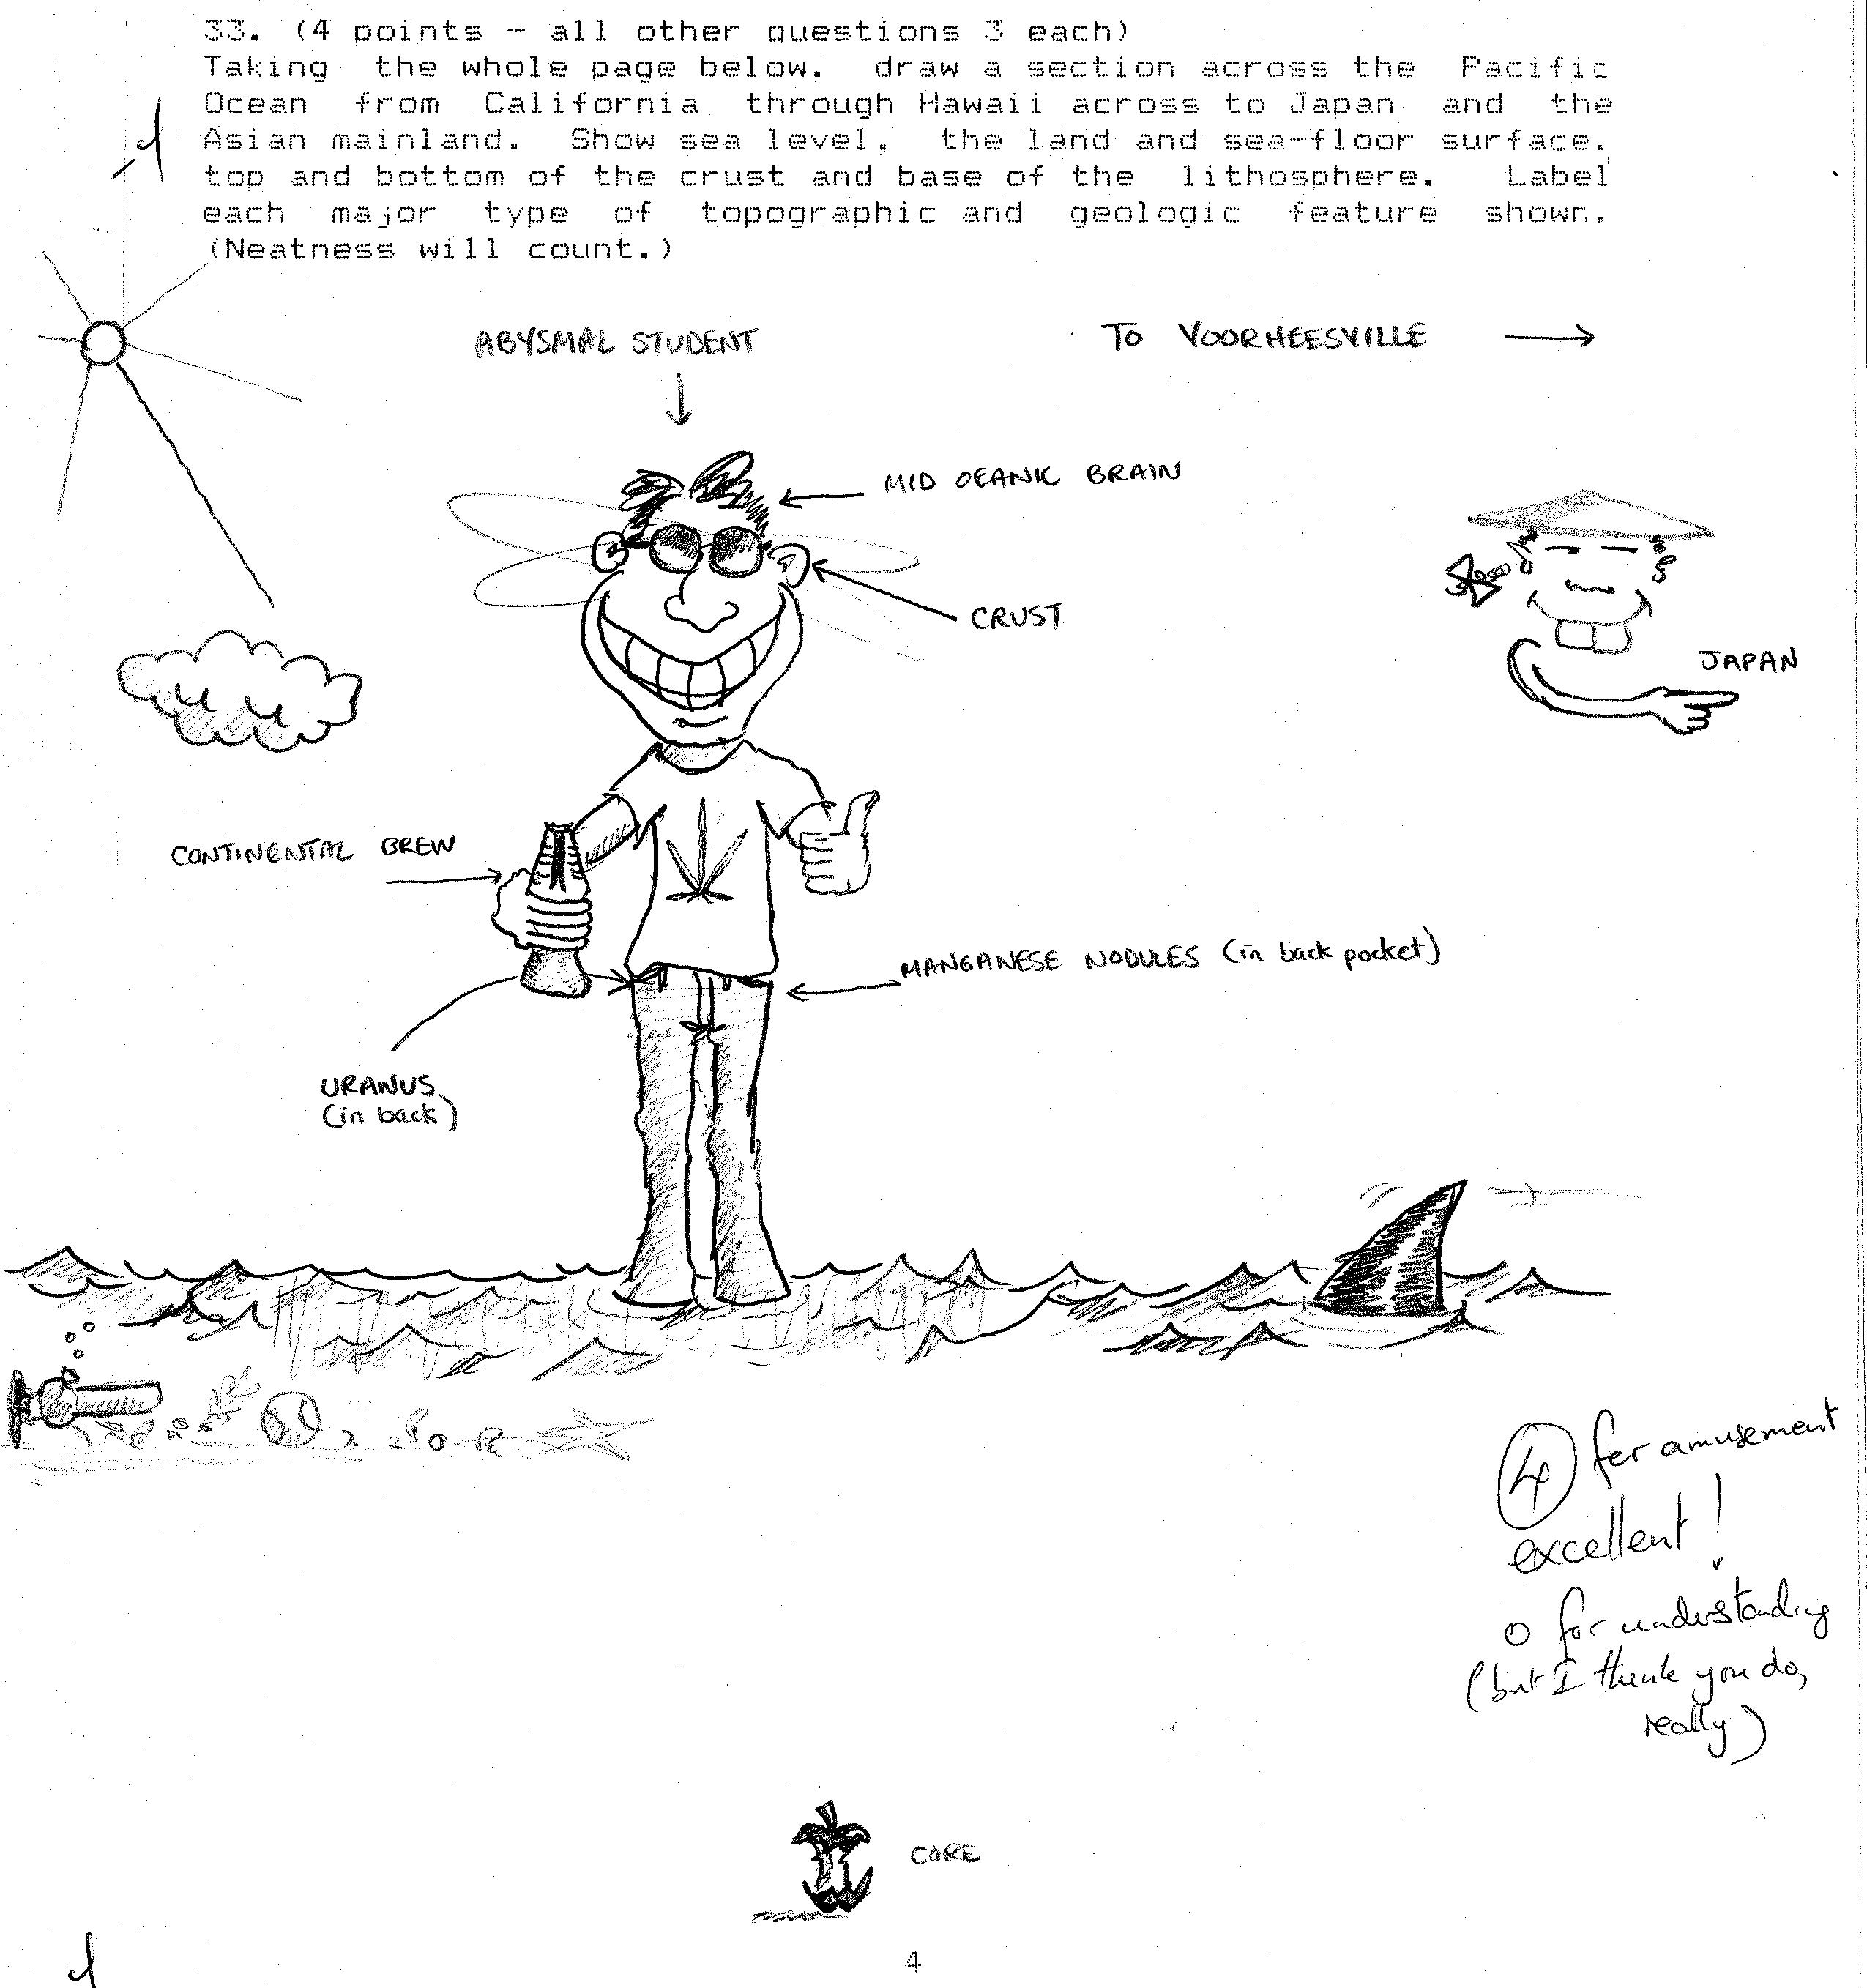 33. (4 points - all other questions 3 each)
Taking the whole page below, draw a section across the Pacific
Ocean from California through Hawaii across to Japan and the
Asian mainland. Show sea level, the land and sea-floor surface,
top and bottom of the crust and base of the lithosphere. Label
each major type of topographic and geologic feature shown.
(Neatness will count.)
-4
ABYSMAL STUDENT
TO VOORHEESVILLE
MID OEANIC BRAIN
CRUST
JAPAN
CONTINENTAL BREW
MANGANESE NODULES (in back pocket)
URANUS
(in back)
4 for amusement
excellent!
0 for understanding
(but I think you do,
really)
CORE
4